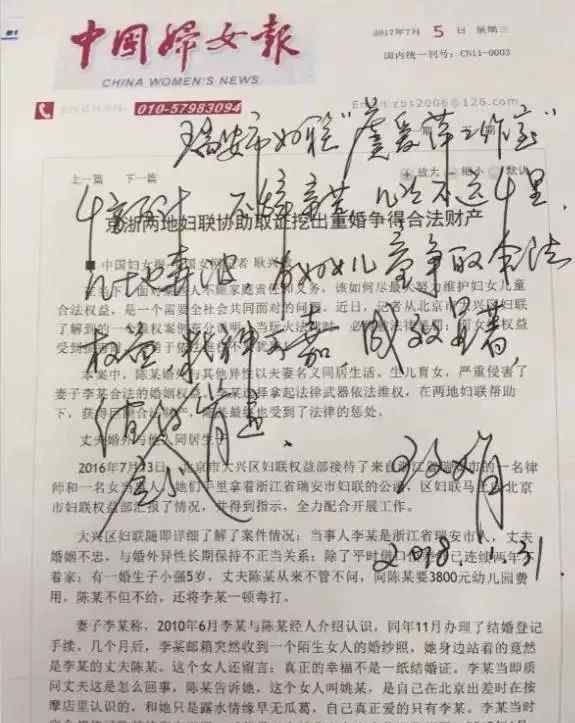 中国妇女报
CHINA WOMEN'S NEWS
2017年7月 5 日 星期三
国内统一刊号：CN11-0003
010-57983094
Email:zbs2006@126.com
瑞安市妇联"虞爱萍工作室"
上一篇 下一篇
放大 缩小 默认
千方百计 不辞辛苦 几次不远千里、
京浙两地妇联协助取证挖出重婚争得合法财产
为妇女儿童争取合法
合法权益，是一个需要全社会共同面对的问题。近日，记者从北京市大兴区妇联
权益 精神可嘉 成效显著，
本案中，陈某婚外与其他异性以夫妻名义同居生活、生儿育女，严重侵害了
妻子李某合法的婚姻权益。李某选择拿起法律武器依法维权，在两地妇联帮助
值得
丈夫婚外与他人同居生子
2018.1.31
2016年7月23日，北京市大兴区妇联权益部接待了来自浙江省瑞安市的一名律
师和一名女当事人，她们手里拿着浙江省瑞安市妇联的公函，区妇联马上向北京
市妇联权益部汇报了情况，并得到指示，全力配合开展工作。
大兴区妇联随即详细了解了案件情况：当事人李某是浙江省瑞安市人，丈夫
婚姻不忠，与婚外异性长期保持不正当关系；除了平时借口 已连续两年不
着家；有一婚生子小强5岁，丈夫陈某从来不管不问，向陈某要3800元幼儿园费
用，陈某不但不给，还将李某一顿毒打。
妻子李某称，2010年6月李某与陈某经人介绍认识，同年11月办理了结婚登记
手续。几个月后，李某邮箱突然收到一个陌生女人的婚纱照，她身边站着的竟然
是李某的丈夫陈某。这个女人还留言：真正的幸福不是一纸结婚证。李某当即质
问丈夫这是怎么回事，陈某告诉她，这个女人叫姚某，是自己在北京出差时在按
摩店里认识的，和她只是露水情缘早无瓜葛，自己真正爱的只有李某。李某当时